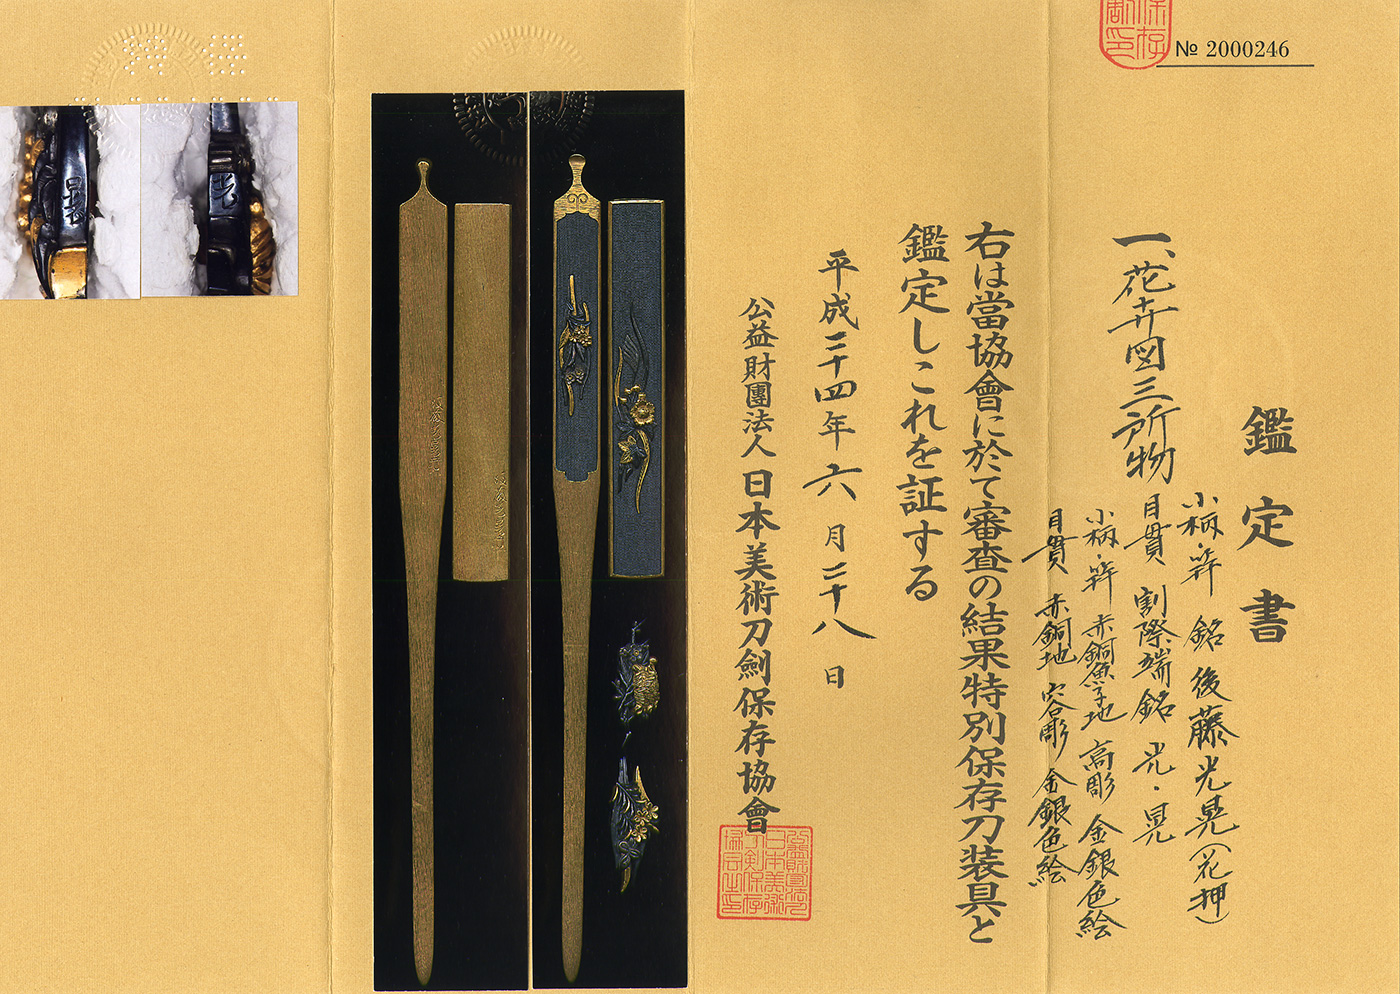 № 2000246
鑑定書
一、花卉図三所物
小柄・笄 銘 後藤光晃(花押)
目貫 割際端銘 光・晃
小柄・笄 赤銅魚子地 高彫 金銀色絵
目貫 赤銅地 容彫 金銀色絵
右は當協會に於て審査の結果特別保存刀装具と
鑑定しこれを証する
平成二十四年六月二十八日
公益財團法人 日本美術刀劍保存協會
光
晃